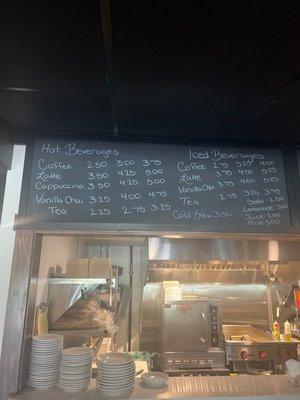 Hot Beverages
Coffee 2.50 3.00 3.75
Latte 3.50 4.25 5.00
Cappuccino 3.50 4.25 5.00
Vanilla Chai 3.50 4.00 4.75
Tea 2.25 2.75 3.25
Iced Beverages
Coffee 2.75 3.25 4.00
Latte 3.75 4.50 5.25
Vanilla Chai 3.75 4.50 5.25
Tea 2.75 3.25 3.75
Cold Brew 3.50
Soda 2.50
Lemonade 3.00
Juice 2.50
Milk 3.00